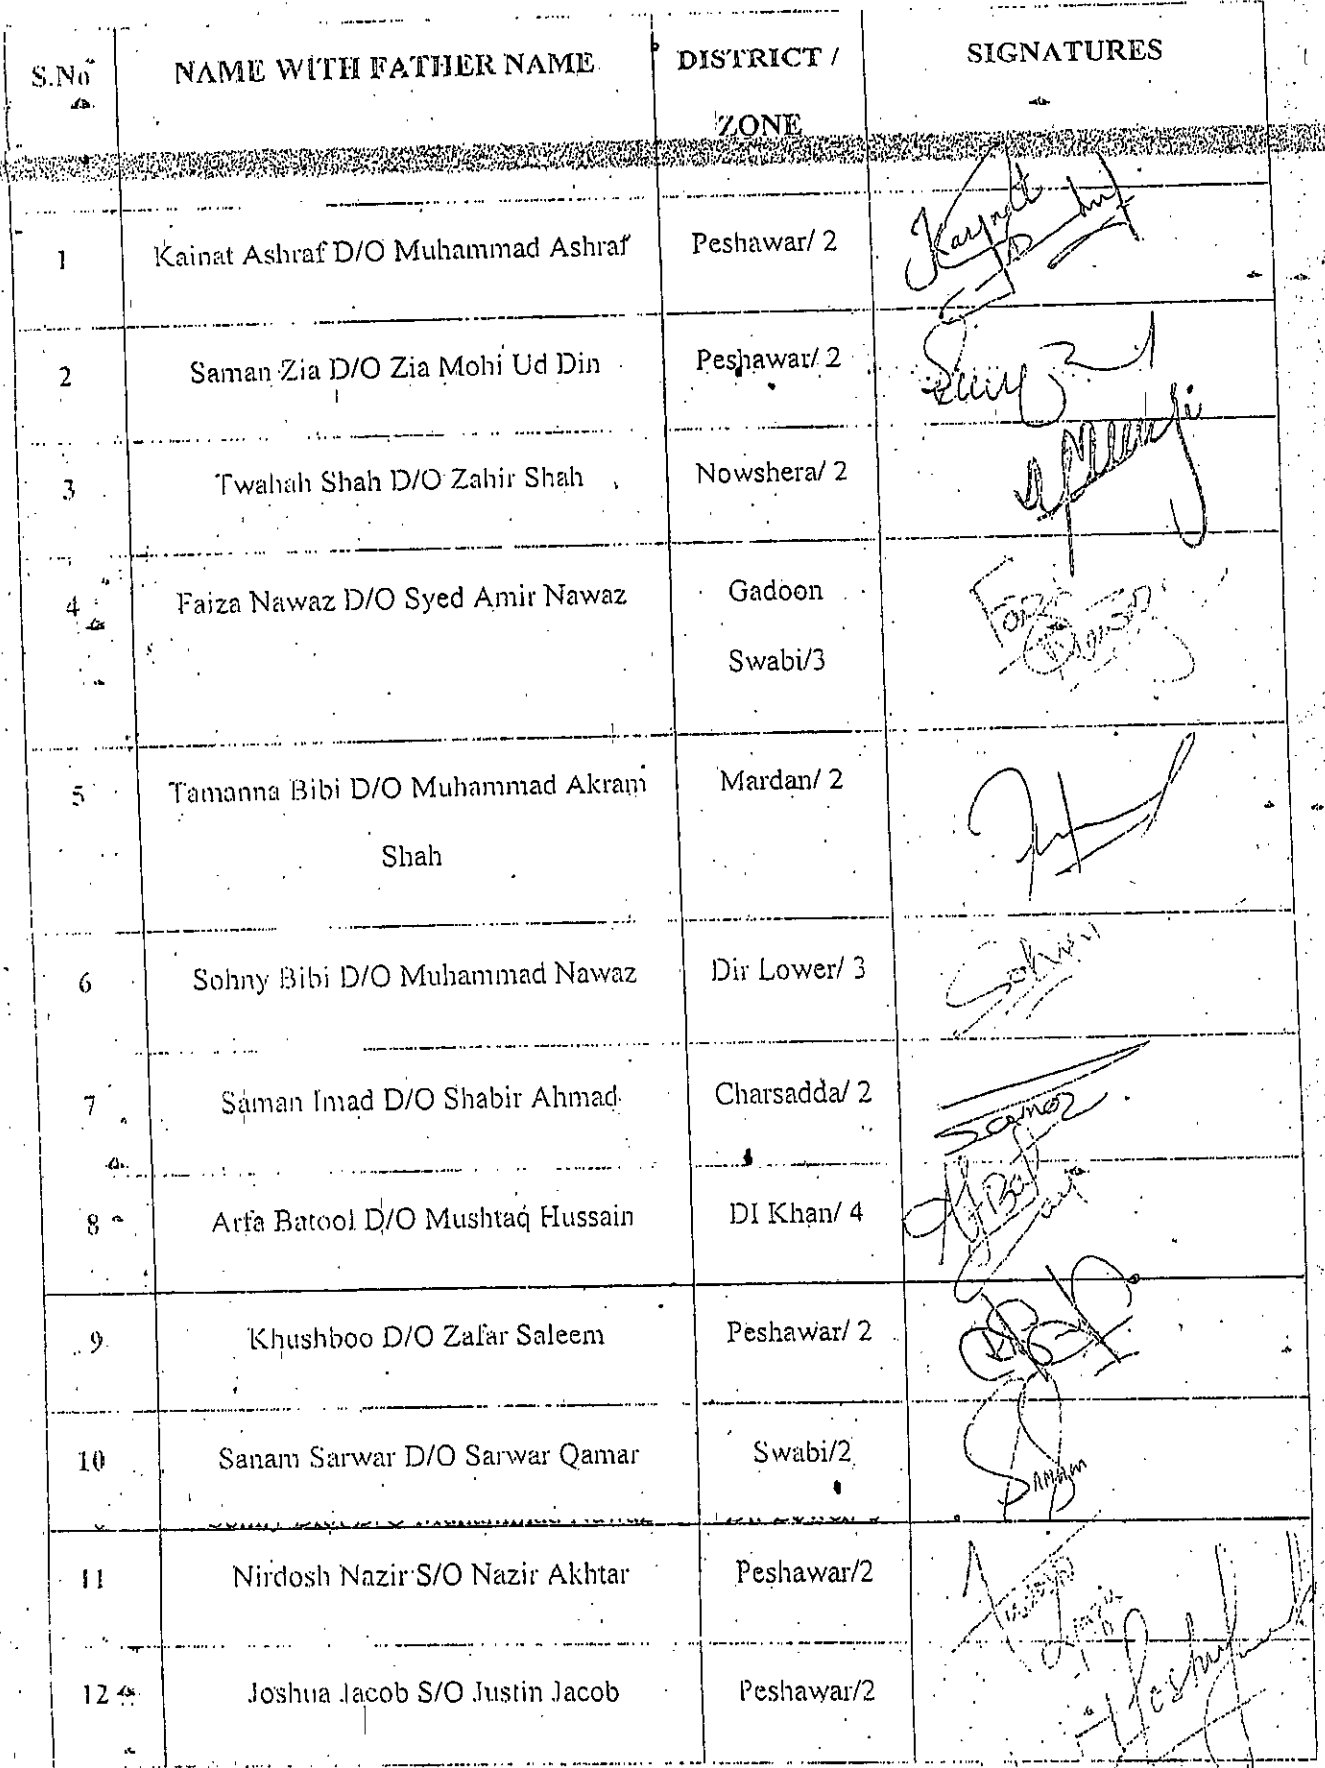 S.No NAME WITH FATHER NAME DISTRICT / SIGNATURES
ZONE
1 Kainat Ashraf D/O Muhammad Ashraf Peshawar/ 2
2 Saman Zia D/O Zia Mohi Ud Din Peshawar/ 2
3 Twahah Shah D/O Zahir Shah Nowshera/ 2
4 Faiza Nawaz D/O Syed Amir Nawaz Gadoon
Swabi/3
5 Tamanna Bibi D/O Muhammad Akram Mardan/ 2
Shah
6 Sohny Bibi D/O Muhammad Nawaz Dir Lower/ 3
7 Saman Imad D/O Shabir Ahmad Charsadda/ 2
8 Arfa Batool D/O Mushtaq Hussain DI Khan/ 4
9 Khushboo D/O Zafar Saleem Peshawar/ 2
10 Sanam Sarwar D/O Sarwar Qamar Swabi/2 Sanam
11 Nirdosh Nazir S/O Nazir Akhtar Peshawar/2
12 Joshua Jacob S/O Justin Jacob Peshawar/2